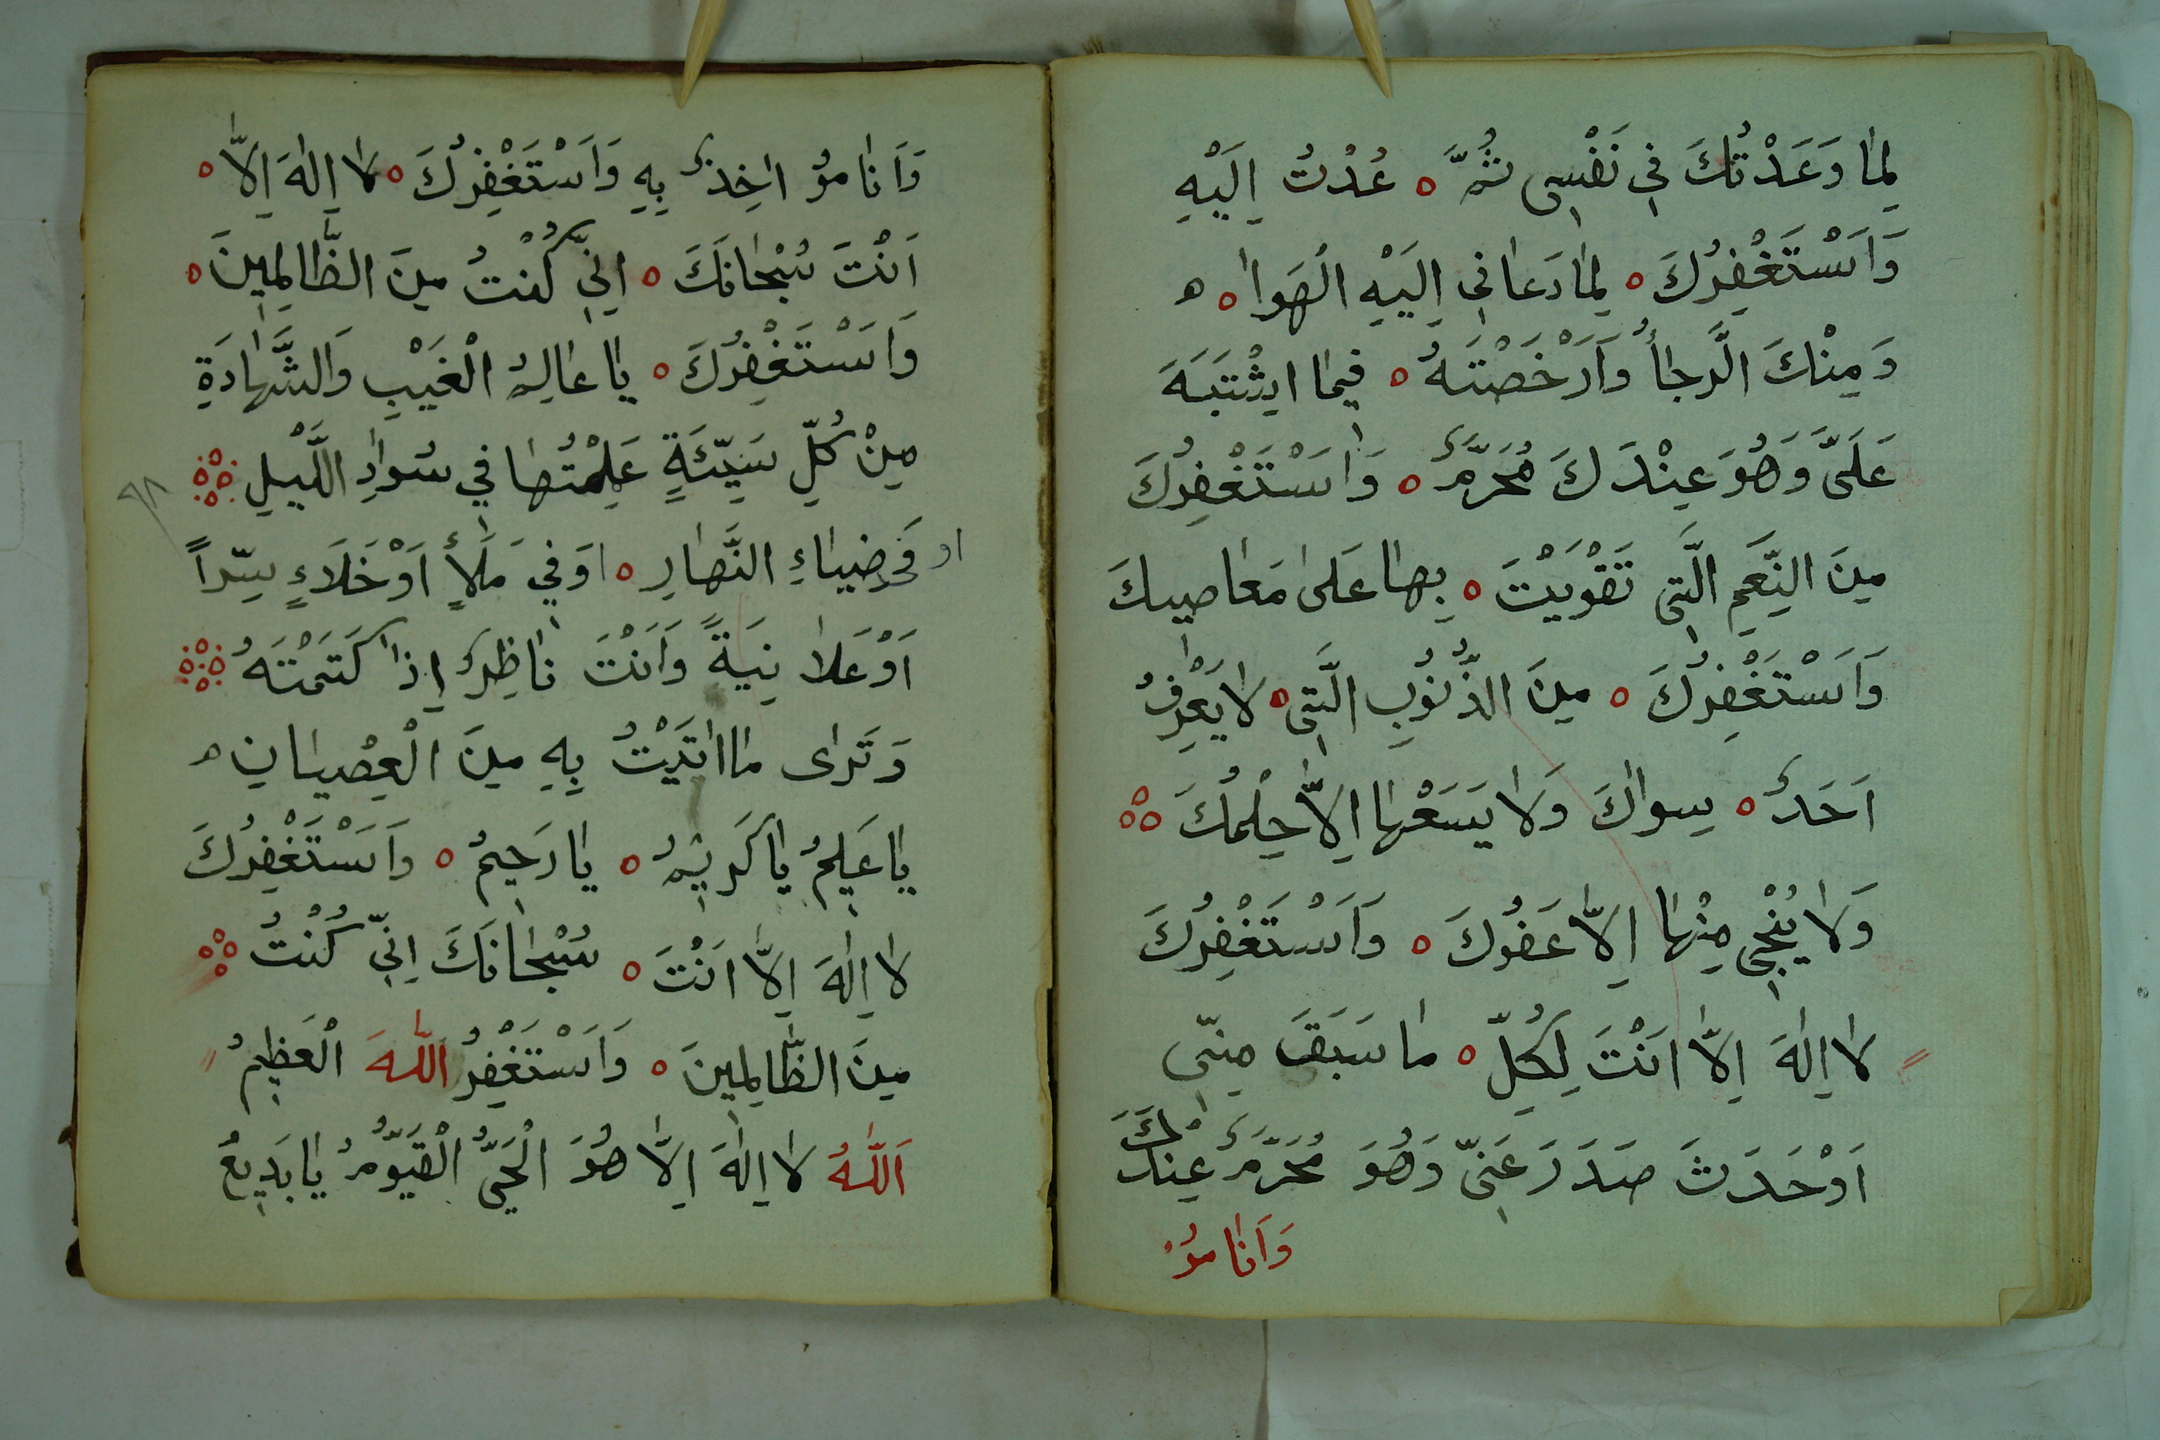 لِمٰا وَعَدْتُكَ فِي نَفْسِي ثُمَّ ه عُدْتُ اِلَيْهِ
وَاَسْتَغْفِرُكَ ه لِمٰا دَعٰانِي اِلَيْهِ الْهَوٰا ه ه
وَمِنْكَ الرَّجٰاُ وَاَرْخَصْتَهُ ه فِيمٰا اشْتَبَهَ
عَلَىَّ وَهُوَ عِنْدَكَ مُحَرَّمٌ ه وَاَسْتَغْفِرُكَ
مِنَ النِّعَمِ الَّتِي تَقْوَيْتَ ه بِهٰا عَلىٰ مَعٰاصِيكَ
وَاَسْتَغْفِرُكَ ه مِنَ الذُّنُوُبِ الَّتِي ه لاٰ يَعْرِفُ
اَحَدٌ ه سِوٰاكَ وَلاٰ يَسَعْهٰا اِلاّٰ حِلْمُكَ
وَلاٰ يُنْجِي مِنْهٰا اِلاّٰ عَفُوكَ ه وَاَسْتَغْفِرُكَ
لاٰ اِلٰهَ اِلاّٰ اَنْتَ لِكُلِّ ه مٰا سَبَقَ مِنّي
اَوْ حَدَثَ صَدَرَ عَنّي وَهُوَ مُحَرَّمٌ عِنْدَكَ
وَاَنٰا مُؤ
وَاَنٰا مُؤاخِذٌ بِهِ وَاَسْتَغْفِرُكَ ه لاٰ اِلٰهَ اِلاّٰ ه
اَنْتَ سُبْحٰانَكَ ه اِنِّي كُنْتُ مِنَ الظّٰالِمِينَ ه
وَاَسْتَغْفِرُكَ ه يٰا عٰالِمُ الْغَيْبِ وَالشَّهٰادَةِ
مِنْ كُلِّ سَيِّئَةٍ عَلِمْتُهٰا فِي سُوٰادِ اللَّيْلِ
او فَي ضِيٰاءِ النَّهٰارِ ه اَوَفِي مَلَأٍ اَوْ خَلَاءٍ سِرّاً
اَوْ عَلاٰنِيَةً وَاَنْتَ نٰاظِرٌ اِذٰا كَتَمْتَهُ
وَتَرٰى مٰا اَتَيْتُ بِهِ مِنَ الْعِصْيٰانِ ه
يٰا عَلِيمُ يٰا كَرِيمُ ه يٰا رَحِيمُ ه وَاَسْتَغْفِرُكَ
لاٰ اِلٰهَ اِلاّٰ اَنْتَ ه سُبْحٰانَكَ اِنِّي كُنْتُ
مِنَ الظّٰالِمِينَ ه وَاَسْتَغْفِرُ اللّٰهَ الْعَظِيمُ
اَللّٰهُ لاٰ اِلٰهَ اِلاّٰ هُوَ الْحَيُّ الْقَيّوُمُ يٰا بَدِيعُ